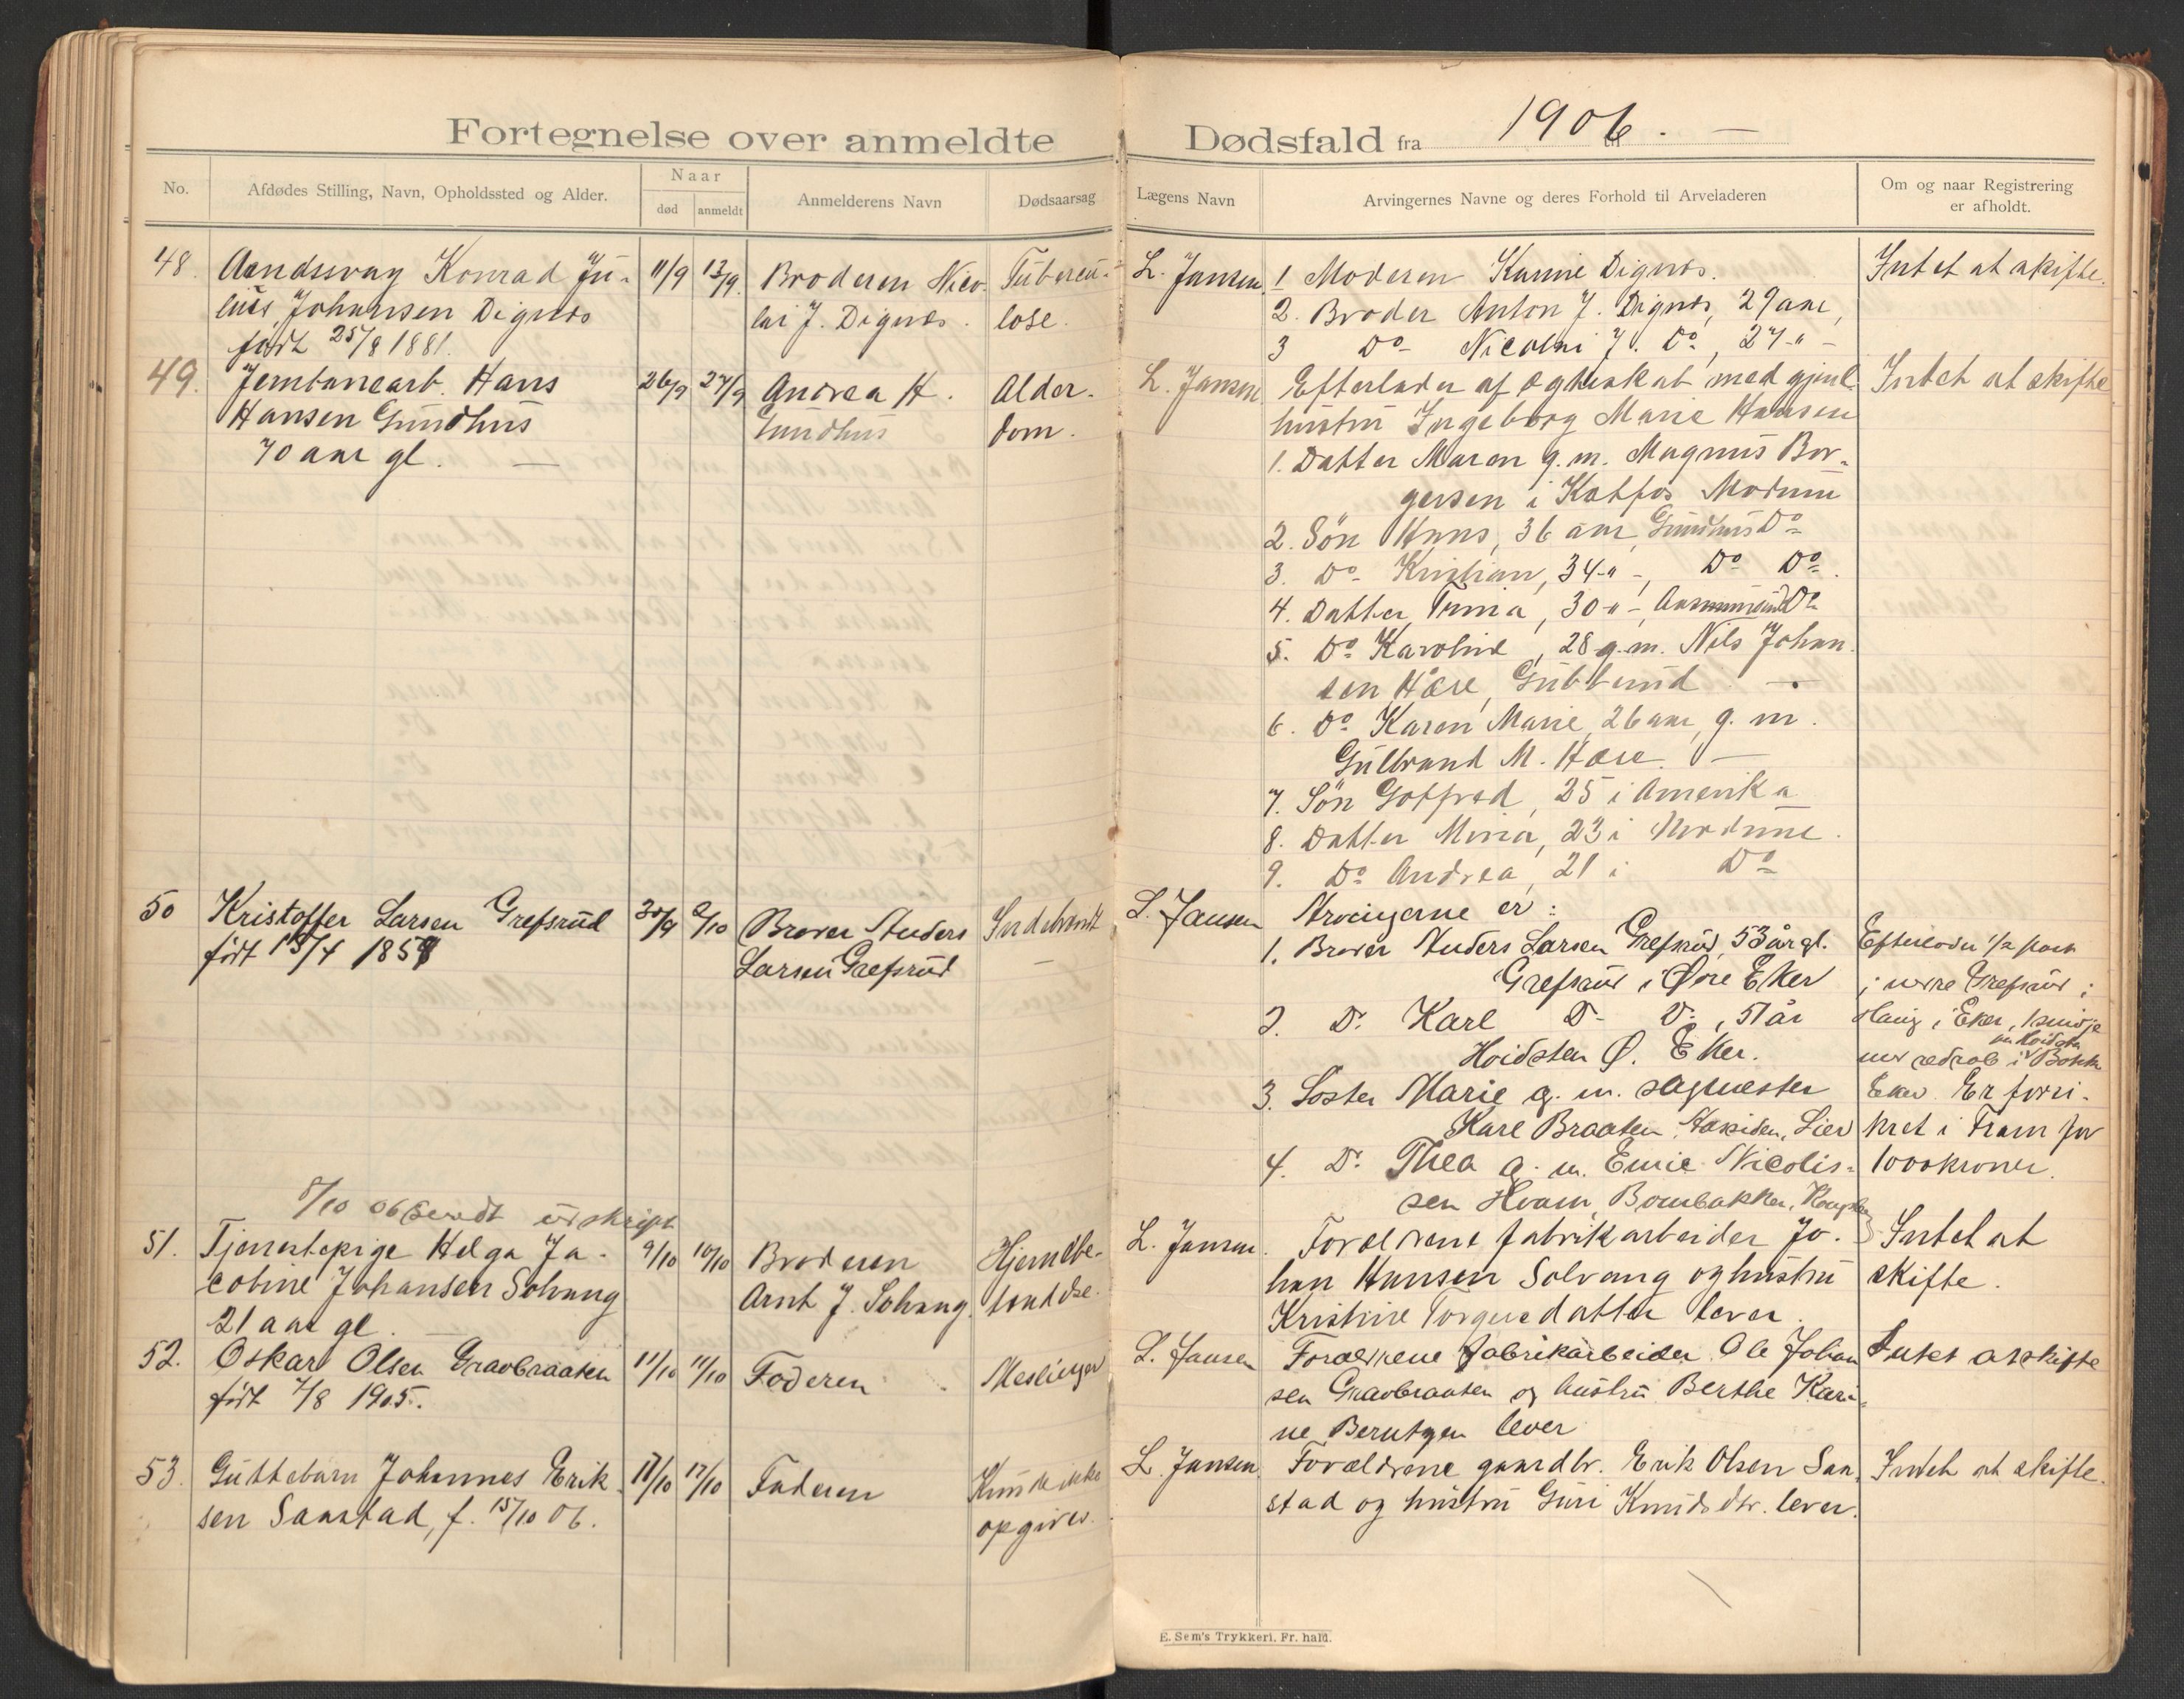 Fortegnelse over anmeldte Dødsfald fra 1906. —
No.
Afdødes Stilling, Navn, Opholdssted og Alder.
Naar
død
anmeldt
Anmelderens Navn
Dødsaarsag
Lægens Navn
Arvingernes Navne og deres Forhold til Arveladeren
Om og naar Registrering
er afholdt.
48. Konrad Ju- 11/9 13/9 Broderen Nico- Tubercu- L. Jansen 1 Moderen Dignæs. Intet at skifte.
lius Johansen Dignæs lai J. Dignæs. lose. 2. Broder Anton J. Dignæs, 29 aar,
født 25/8 1881. 3 Do Nicolai J. Do, 27 -"-
49. Jernbanearb. Hans 26/9 27/9 Andrea H. Alder- L. Jansen Efterlader af ægteskab med gjenl. Intet at skifte
Hansen Gundhus Gundhus dom. hustru Ingeborg Marie Hansen
70 aar gl. — 1. Datter Maren g. m. Magnus Bor-
gersen i Katfos Modum
2. Søn Hans, 36 aar, Gundhus Do
3. Do Kristian, 34 -"-, Do Do.
4. Datter, 30 -"-, Do
5. Do Karoline, 28 g. m. Nils Johan-
sen Hære,
6. Do Karen Marie, 26 aar, g. m.
Gulbrand M. Hære. —
7. Søn Gotfred, 25 i Amerika
8. Datter 23 i Modum.
9. Do Andrea, 21 i Do
50 Kristoffer Larsen Grefsrud 30/9 2/10 Broder Anders L. Jansen Arvingerne er:
født 15/4 Larsen Grefsrud — 1. Broder Anders Larsen Grefsrud, 53 år gl. Efterlader 1/2 part
Grefsrud i Øvre Eker i Grefsrud i
2. Do Karl Do Do, 51 år Haug i Eker,
Hoidsten Ø. Eker.
3. Søster Marie g. m. sagmester Eker. Er forsi-
Karl Braaten, Lier kret i Fram for
4. Do Thea g. m. Nicolis- 1000 kroner.
sen Hvam,
8/10 06 sendt udskript
51. Tjenestepige Helga Ja- 9/10 10/10 Broderen Hjernebe- L. Jansen. Forældrene fabrikarbeider Jo- Intet at
cobine Johansen Solvang Arnt J. Solvang. tændelse. han Hansen Solvang og hustru skifte.
21 aar gl. Kristine Torgersdatter lever.
52. Oskar Olsen Gravbraaten 11/10 11/10 Faderen Meslinger L. Jansen Forældrene fabrikarbeider Ole Johan- Intet at skifte
født 4/8 1905. sen Gravbraaten og hustru Berthe Kari-
ne Berntsen lever
53. Guttebarn Johannes Erik- 17/10 17/10 Faderen Kunde ikke L. Jansen Forældrene gaardbr. Erik Olsen Saa- Intet at skifte.
sen Saastad, f. 15/10 06. opgives. stad og hustru Guri Knudsdtr. lever.
E. Sem's Trykkeri, Fr. hald.